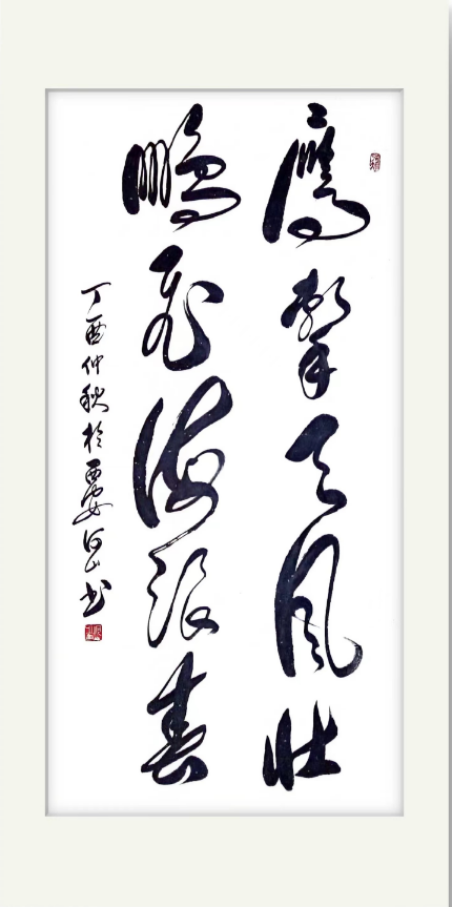 鹰击天风壮
鹏飞海浪春
丁酉仲秋於西安河山书